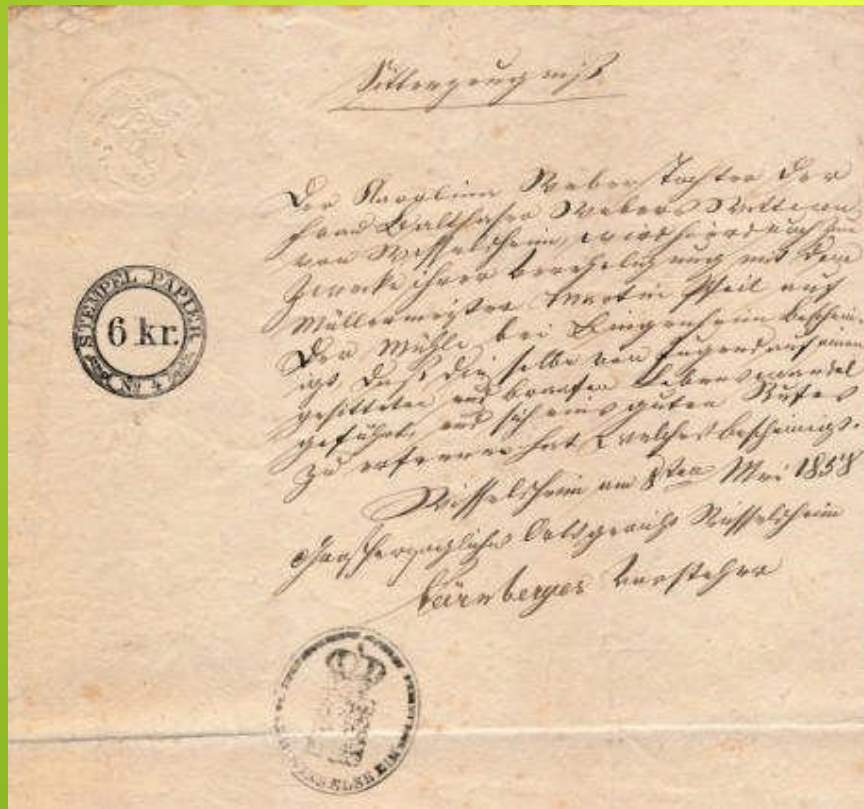 Sittenzeugniß
Der Karoline Weber Tochter der
Frau Balthaser Webers Wittwe
von Wisselsheim, wird hierdurch zum
Zwecke ihrer Verehelichung mit dem
Müllermeister Martin Pfeil auf
Der Mühle bei Bingenheim beschein-
igt, daß dieselbe von Jugend auf einen
gesitteten und braafen Lebenswandel
geführt, und sich eins guten Rufes
zu erfreuen hat Welches bescheinigt.
Wisselsheim am 8ten Mai 1858
Großherzogliches Ortsgericht Wisselsheim
Vorsteher
STEMPEL PAPIER
6 kr.
No 4